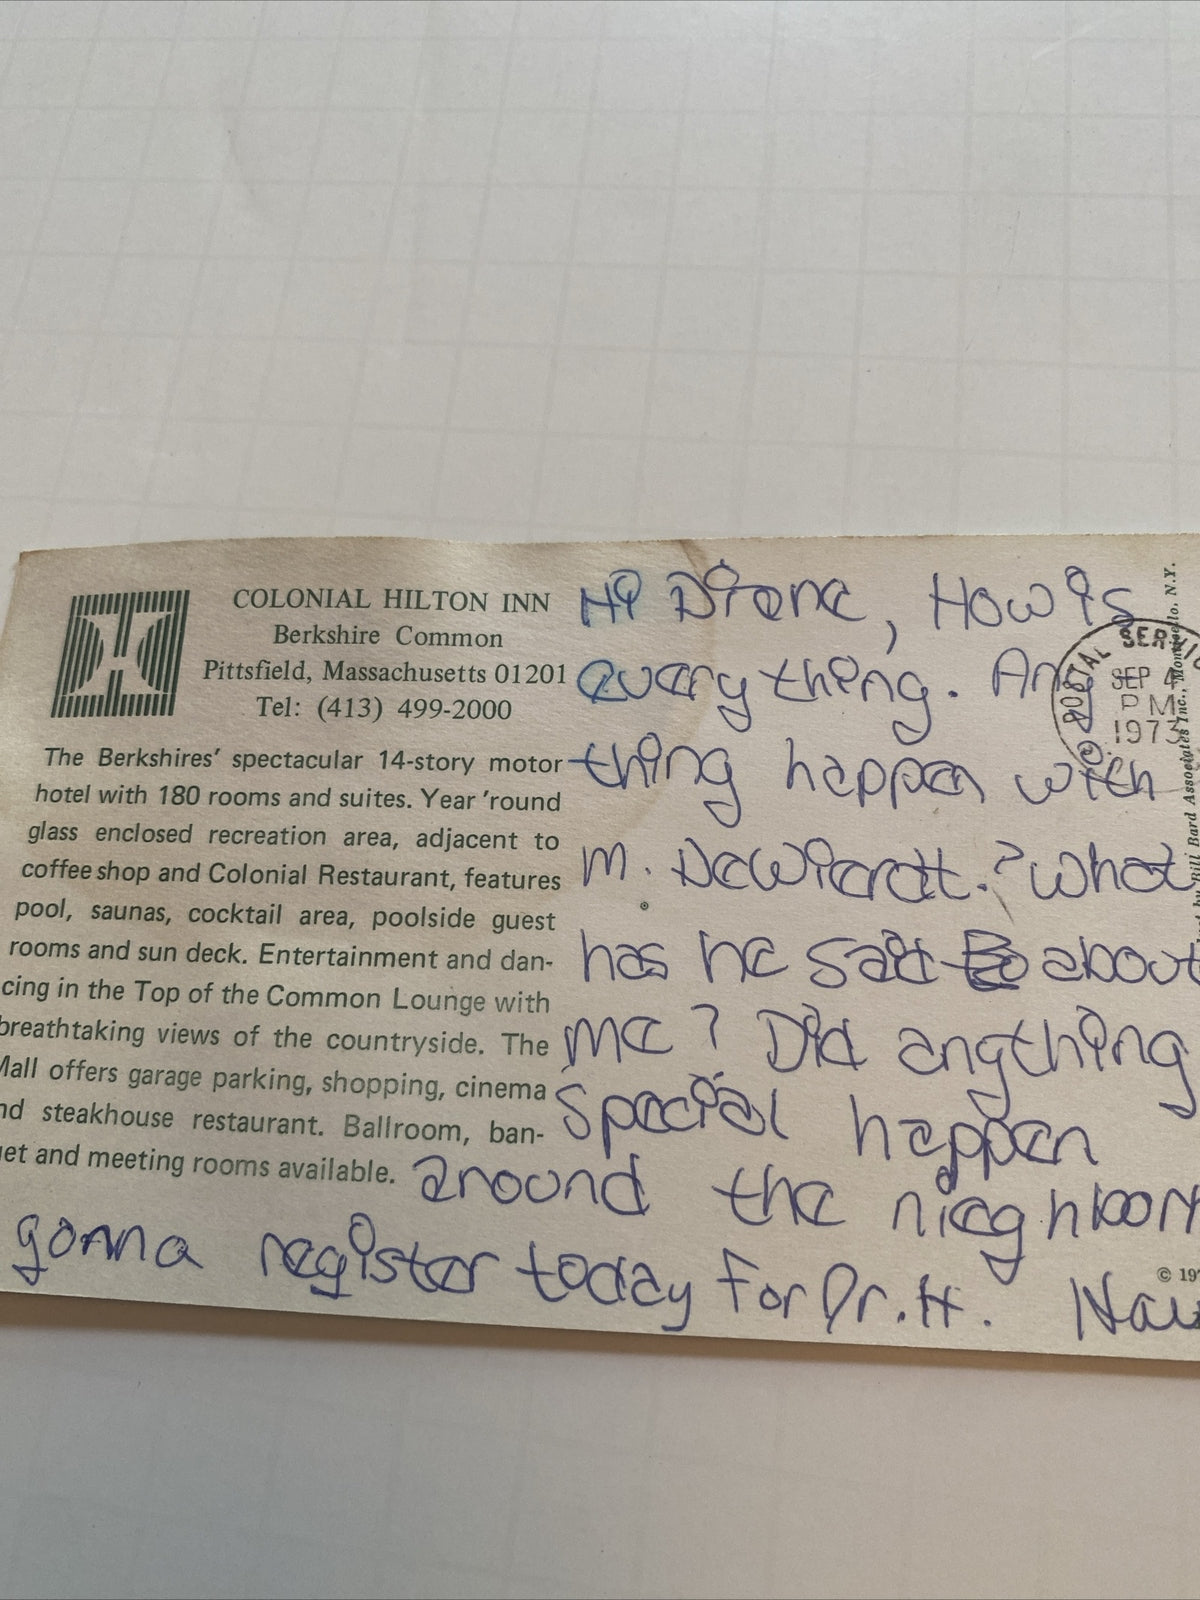 COLONIAL HILTON INN
Berkshire Common
Pittsfield, Massachusetts 01201
Tel: (413) 499-2000
The Berkshires' spectacular 14-story motor
hotel with 180 rooms and suites. Year 'round
glass enclosed recreation area, adjacent to
coffee shop and Colonial Restaurant, features
pool, saunas, cocktail area, poolside guest
rooms and sun deck. Entertainment and dan-
cing in the Top of the Common Lounge with
breathtaking views of the countryside. The
Mall offers garage parking, shopping, cinema
nd steakhouse restaurant. Ballroom, ban-
uet and meeting rooms available.
Hi Diane, How is
everything. Any
thing happen with
M. DeWierdt.? What
has he said about
me? Did anything
special happen
around the nieghbor
gonna register today for Dr. H.
POSTAL SERVIC
SEP 4
PM
1973
Bill Bard Associates Inc., Monticello, N.Y.
© 197